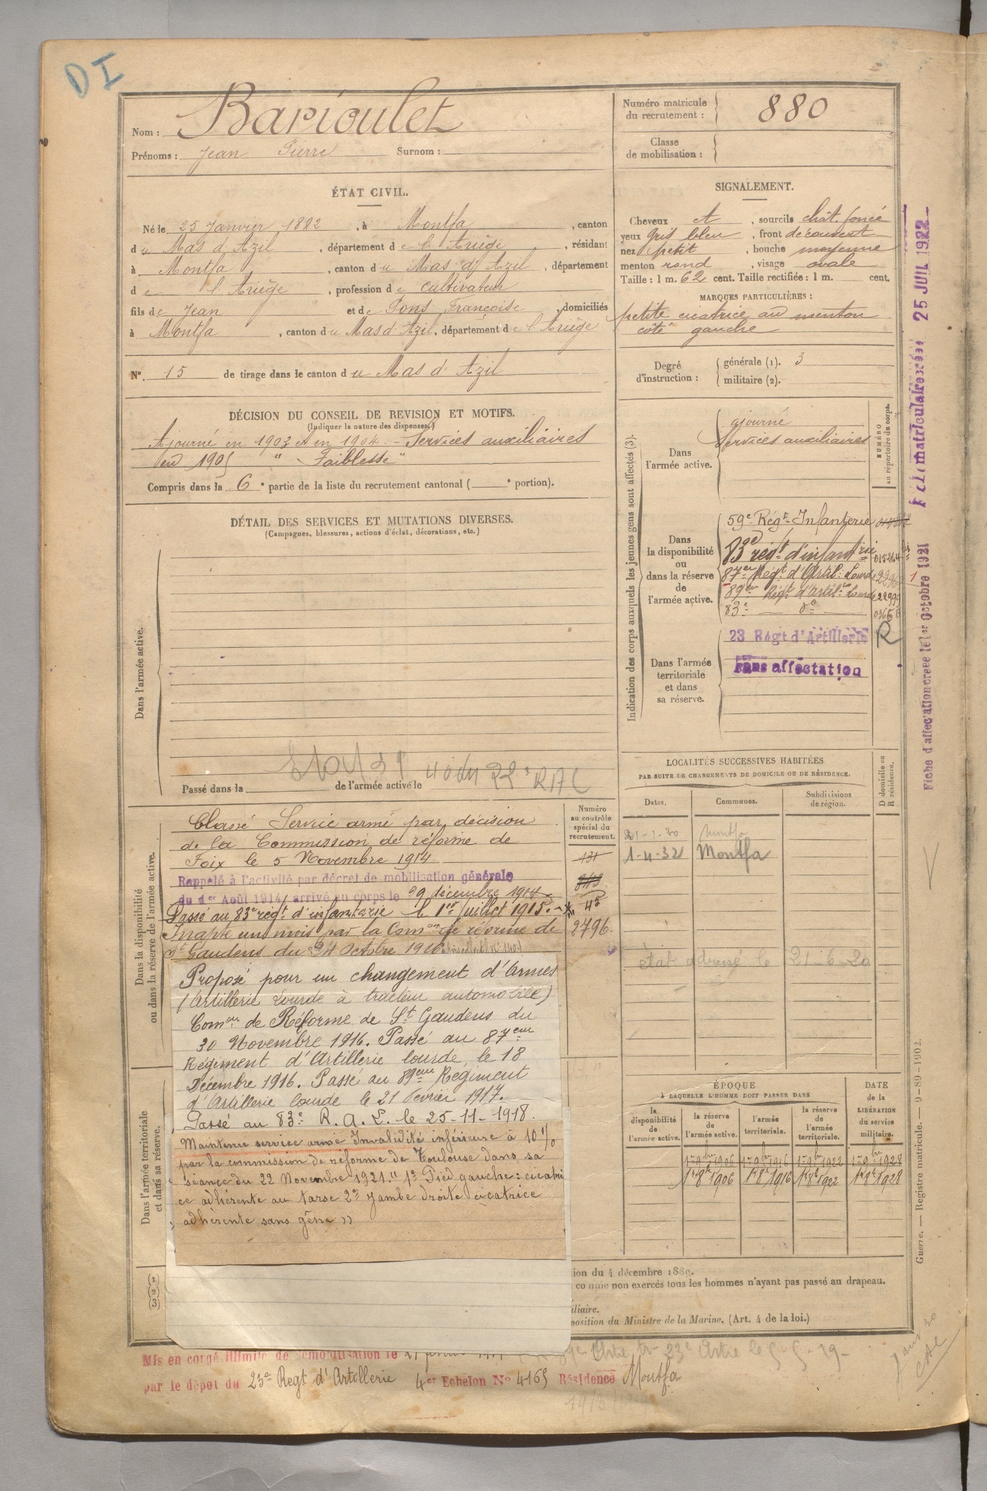 DI
Nom : Barioulet
Prénoms : Jean Pierre Surnom :
Numéro matricule du recrutement : 880
Classe de mobilisation :
ÉTAT CIVIL.
Né le 25 Janvier 1882, à Montfa, canton
du Mas d'Azil, département de l'Ariège, résidant
à Montfa, canton du Mas d'Azil, département
de l'Ariège, profession de cultivateur
fils de Jean et de Fons Françoise, domiciliés
à Montfa, canton du Mas d'Azil, département de l'Ariège
N° 15 de tirage dans le canton du Mas d'Azil
SIGNALEMENT.
Cheveux et, sourcils chât. foncé
yeux gris bleu, front découvert
nez petit, bouche moyenne
menton rond, visage ovale
Taille : 1 m. 62 cent. Taille rectifiée : 1 m. cent.
MARQUES PARTICULIÈRES :
petite cicatrice au menton
côté gauche
Degré d'instruction : générale (1). 3
militaire (2).
DÉCISION DU CONSEIL DE REVISION ET MOTIFS.
(Indiquer la nature des dispenses.)
Ajourné en 1903 et en 1904 - Services auxiliaires
en 1905 " - Faiblesse "
Compris dans la 6e partie de la liste du recrutement cantonal ( e portion).
DÉTAIL DES SERVICES ET MUTATIONS DIVERSES.
(Campagnes, blessures, actions d'éclat, décorations, etc.)
Dans l'armée active.
Passé dans la de l'armée active le
Indication des corps auxquels les jeunes gens sont affectés (3).
NUMÉRO au répertoire du corps.
Dans l'armée active.
ajourné
Services auxiliaires
Dans la disponibilité ou dans la réserve de l'armée active.
59e Régt Infanterie
83e régt d'infanterie
87e Régt d'Artil. Lourde
89e Régt d'Artil. Lourde
83e do
R
Dans l'armée territoriale et dans sa réserve.
23 Régt d'Artillerie
sans affectation
Fiche d'affectation créée le 1er Octobre 1921
25 JUIL 1922
LOCALITÉS SUCCESSIVES HABITÉES
PAR SUITE DE CHANGEMENTS DE DOMICILE OU DE RÉSIDENCE.
Dates. Communes. Subdivisions de région. D domicile ou R résidence.
Montfa
1-4-32 Montfa
état adressé le 21-6-20
Dans la disponibilité ou dans la réserve de l'armée active.
Numéro au contrôle spécial du recrutement.
2796
Classé Service armé par décision
de la Commission de réforme de
Foix le 5 Novembre 1914
Rappelé à l'activité par décret de mobilisation générale
du 1er Août 1914, arrivé au corps le 9 décembre 1914.
Passé au 83e régt d'infanterie le 1er Juillet 1915.
Inapte un mois par la Comon de réforme de
St Gaudens du 24 Octobre 1916
Proposé pour un changement d'armes
(Artillerie lourde à tracteur automobile)
Comon de Réforme de St Gaudens du
30 Novembre 1916. Passé au 87eme
Régiment d'Artillerie lourde, le 18
Décembre 1916. Passé au 89eme Régiment
d'Artillerie lourde le 21 février 1917.
Passé au 83e R. A. L. le 25-11-1918.
Maintenu service armé Invalidité inférieure à 10%
par la commission de réforme de Toulouse dans sa
séance du 22 Novembre 1921. " 1° Pied gauche : cicatri
ce adhérente au tarse 2° jambe droite cicatrice
adhérente sans gêne "
Dans l'armée territoriale et dans sa réserve.
ÉPOQUE
À LAQUELLE L'HOMME DOIT PASSER DANS
DATE de la LIBÉRATION du service militaire.
la disponibilité de l'armée active. la réserve de l'armée active. l'armée territoriale. la réserve de l'armée territoriale.
1er 8bre 1906 1er 8bre 1916 1er 8bre 1922 1er 8bre 1928
ion du 4 décembre 1889.
comme non exercés tous les hommes n'ayant pas passé au drapeau.
iliaire.
position du Ministre de la Marine. (Art. 4 de la loi.)
Guerre. — Registre matricule. — 9-89-1902.
Mis en congé illimité de démobilisation le
par le dépôt du 23e Regt d'Artillerie 4er Echelon N° 4165 Résidence Montfa